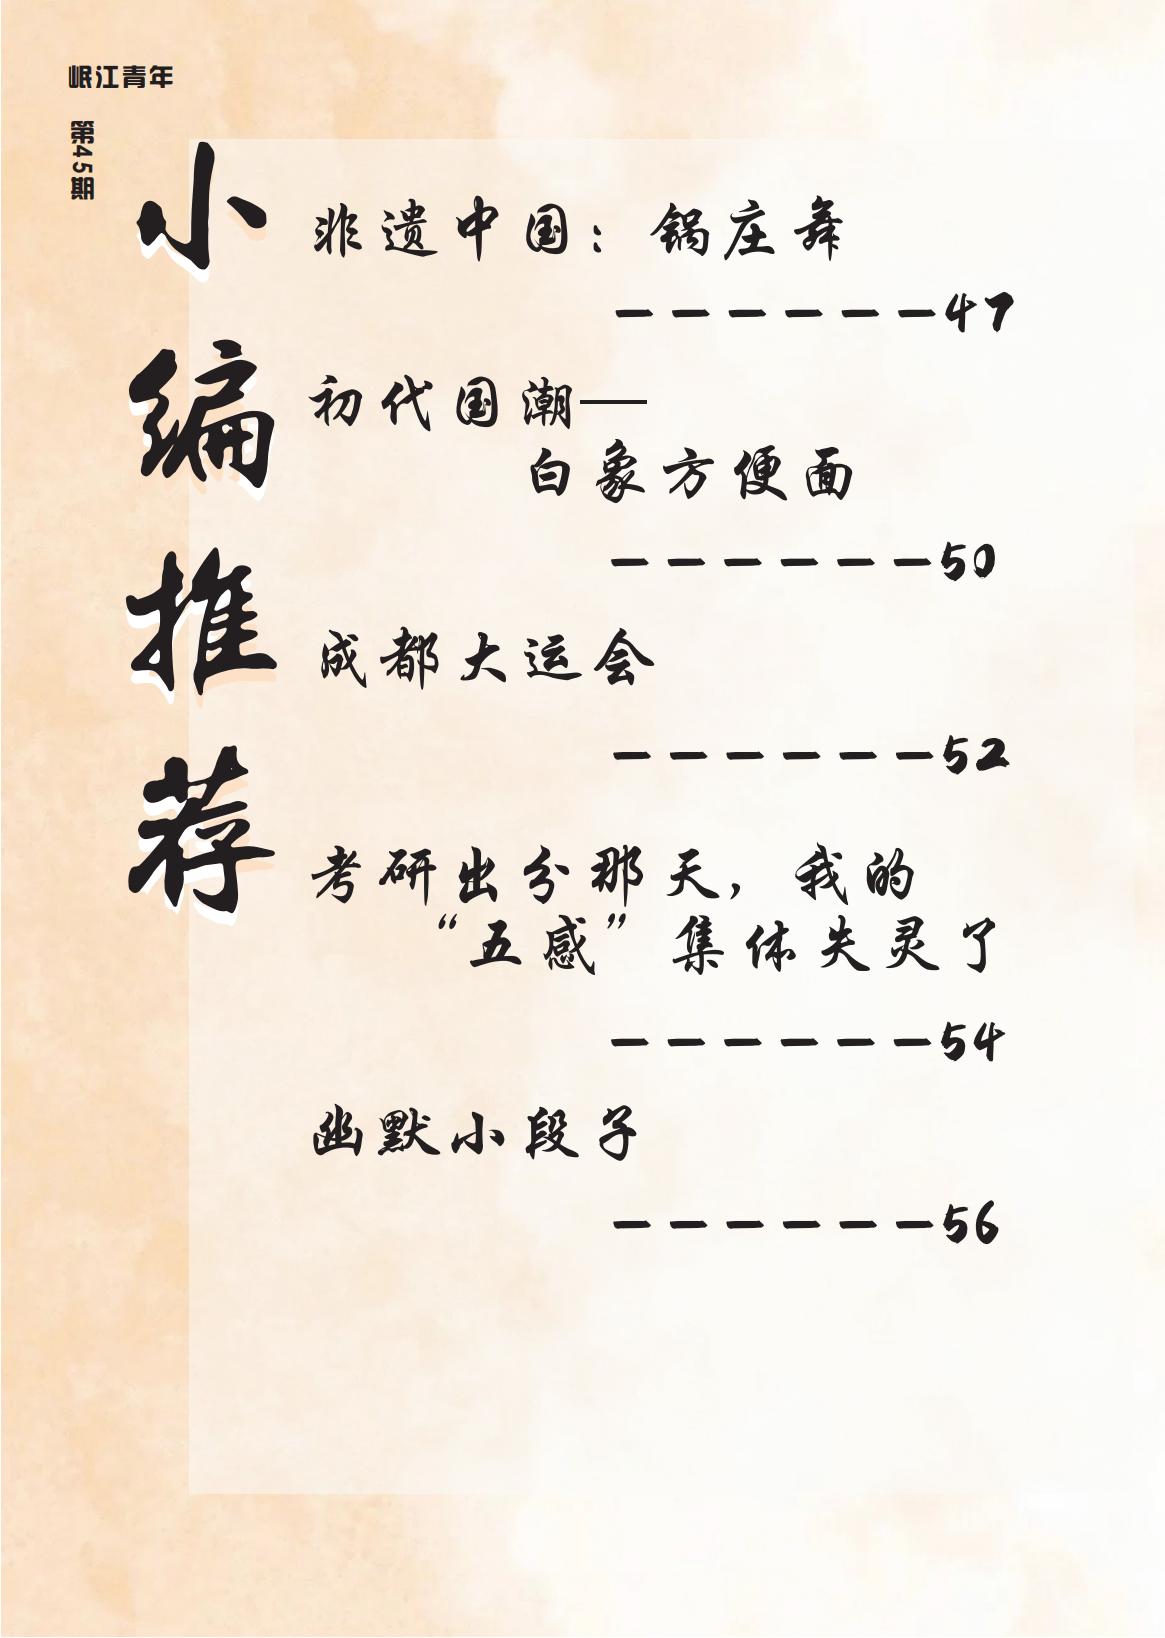 岷江青年
第45期
小编推荐
非遗中国：锅庄舞
——————47
初代国潮——
白象方便面
——————50
成都大运会
——————52
考研出分那天，我的
“五感”集体失灵了
——————54
幽默小段子
——————56